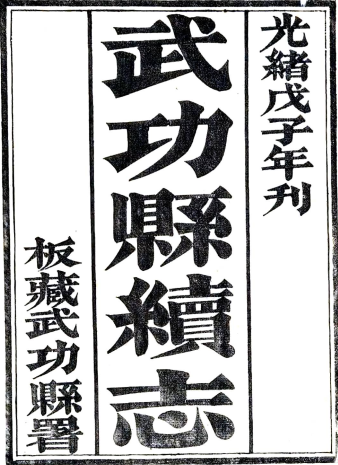 光緒戊子年刊
武功縣續志
板藏武功縣署